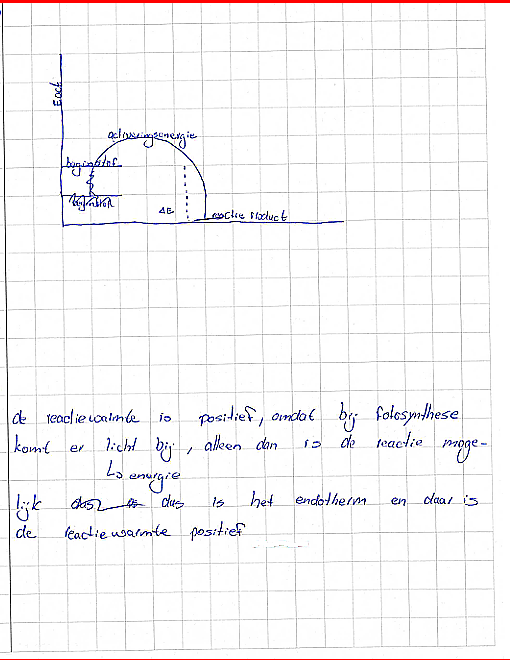 Eact
activeringsenergie
beginstof
ΔE
reactie product
de reactiewarmte is positief, omdat bij fotosynthese
komt er licht bij, alleen dan is de reactie moge-
↳ energie
lijk dus is het endotherm en daar is
de reactiewarmte positief